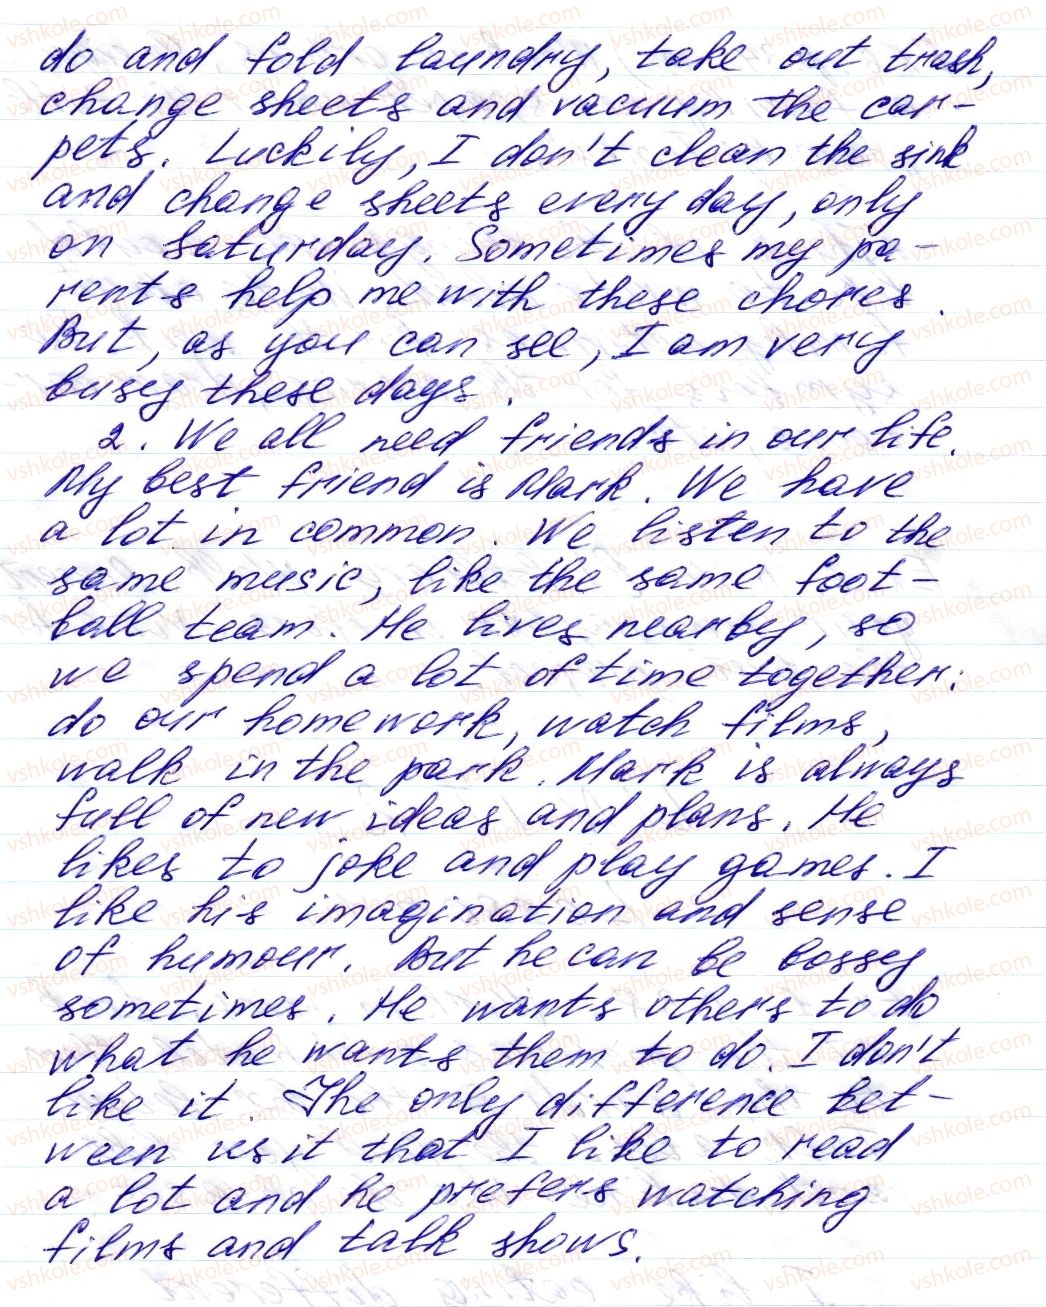 do and fold laundry, take out trash,
change sheets and vacuum the car-
pets. Luckily, I don't clean the sink
and change sheets every day, only
on Saturday. Sometimes my pa-
rents help me with these chores.
But, as you can see, I am very
busy these days.
2. We all need friends in our life.
My best friend is Mark. We have
a lot in common. We listen to the
same music, like the same foot-
ball team. He lives nearby, so
we spend a lot of time together:
do our homework, watch films,
walk in the park. Mark is always
full of new ideas and plans. He
likes to joke and play games. I
like his imagination and sense
of humour. But he can be bossy
sometimes. He wants others to do
what he wants them to do. I don't
like it. The only difference bet-
ween us it that I like to read
a lot and he prefers watching
films and talk shows.
vshkole.com